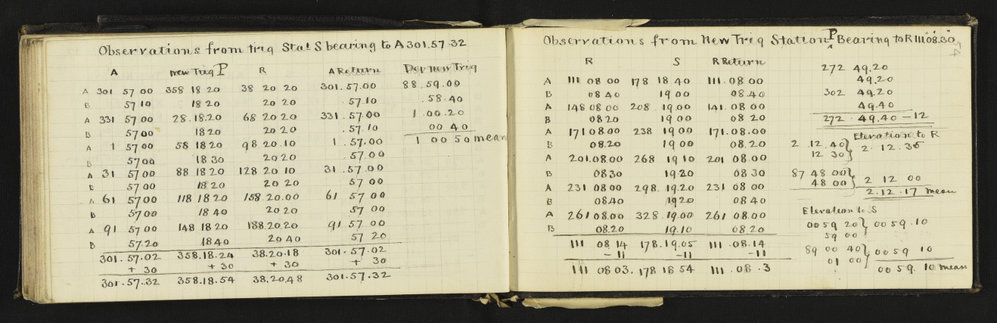 Observations from trig Stat S bearing to A 301.57.32
A new Trig P R A Return Dep new Trig
A 301 57 00 358 18 20 38 20 20 301.57.00 88.59.00
B 57 10 18 20 20 20 .57.10 .58.40
A 331 57 00 28.18.20 68 20 20 331.57.00 1 00.20
B 57 00 18 20 20.20 .57.10 00 40
A 1 57 00 58 18 20 98 20.10 1.57.00 1 00 50 mean
B 57 00 18 30 20 20 57.00
A 31 57 00 88 18 20 128 20 10 31.57.00
B 57 00 18 20 20 20 57 00
A 61 57 00 118 18 20 158.20.00 61 57 00
B 57 00 18 40 20 20 57 00
A 91 57 00 148 18 20 188.20.20 91 57 00
B 57.20 18 40 20 40 57 20
301.57.02 358.18.24 38.20.18 301.57.02
+ 30 + 30 + 30 + 30
301.57.32 358.18.54 38.20.48 301.57.32
Observations from New Trig Station P Bearing to R 111.08.30
R S R Return
A 111 08 00 178 18 40 111.08 00
B 08 40 19 00 08.40
A 148 08 00 208.19 00 141.08 00
B 08 20 19 00 08 20
A 171 08.00 238 19 00 171.08.00
B 08.20 19 00 08.20
A 201.08 00 268 19 10 201 08 00
B 08 30 19 20 08 30
A 231 08 00 298.19 20 231 08 00
B 08 40 19 20 08 40
A 261 08 00 328 19 00 261 08 00
B 08.20 19.10 08 20
111 08 14 178.19.05 111.08.14
-11 -11 -11
111 08 03. 178 18 54 111.08.3
272 49.20
49.20
302 49.20
49.40
272.49.40-12
Elevation to R
2 12 40 } 2 12.35
12 30
87 48 00 } 2 12 00
48 00
2.12.17 mean
Elevation to S
00 59 20 } 00 59.10
59 00
89 00 40 } 00 59 10
01 00
00 59.10 mean